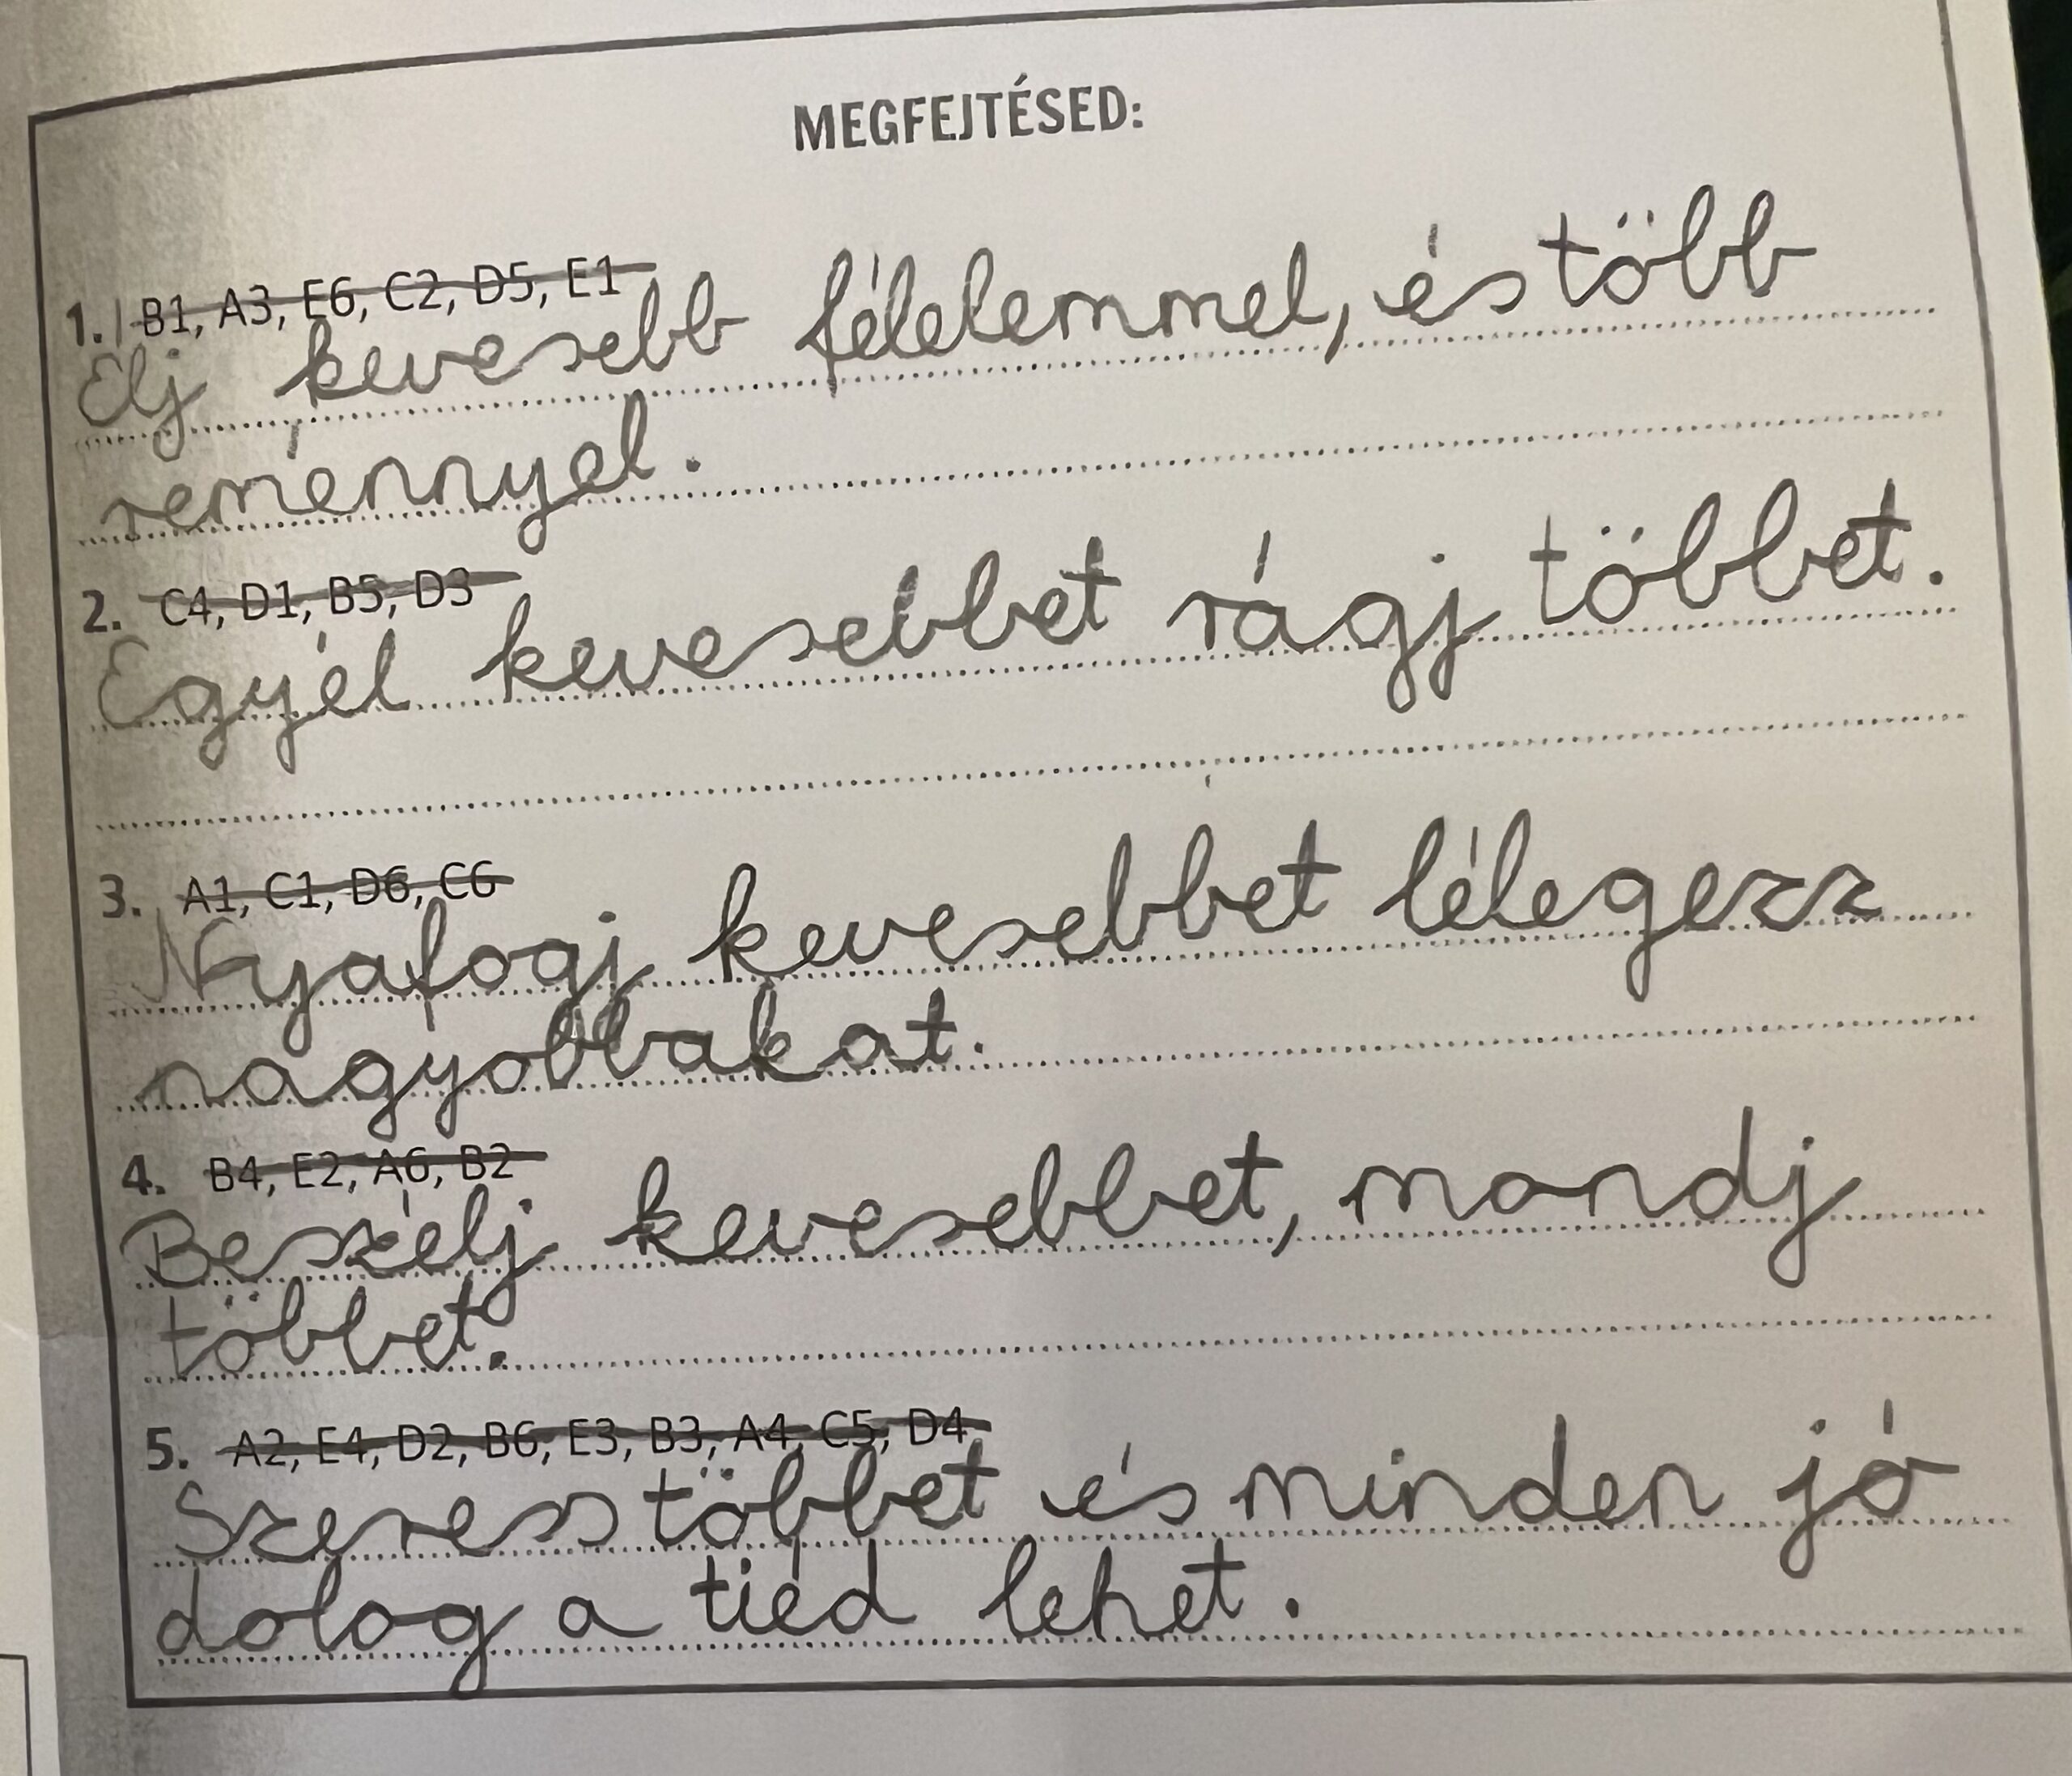 MEGFEJTÉSED:
1. B1, A3, E6, C2, D5, E1
Élj kevesebb félelemmel, és több
reménnyel.
2. C4, D1, B5, D3
Egyél kevesebbet rágj többet.
3. A1, C1, D6, C6
Nyafogj kevesebbet lélegezz
nagyobbakat.
4. B4, E2, A6, B2
Beszélj kevesebbet, mondj
többet.
5. A2, E4, D2, B6, E3, B3, A4, C5, D4
Szeress többet és minden jó
dolog a tiéd lehet.